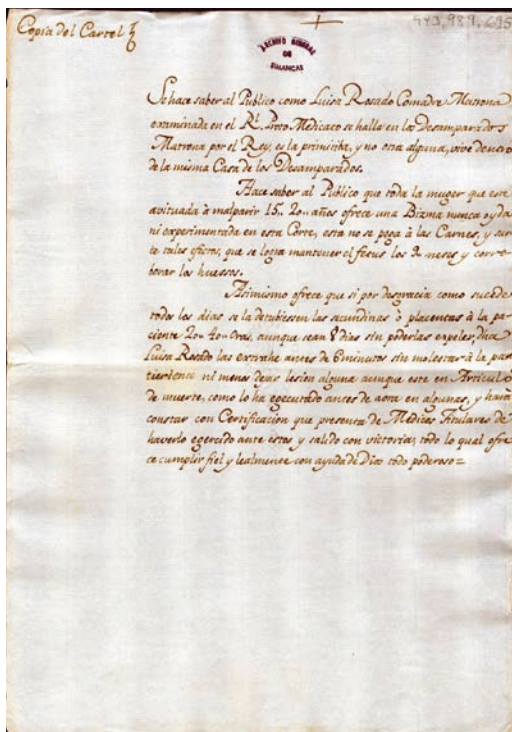 Copia del Cartel
ARCHIVO GENERAL
DE
SIMANCAS
Se hace saber al Publico como Luisa Rosado Comadre Matrona
examinada en el Rl. Proto Medicato se halla en los Desamparados
Matrona por el Rey, es la primirita, y no otra alguna, vive dentro
de la misma Casa de los Desamparados.
Hace saber al Publico que toda la muger que este
avituada à malparir 15.. 20.. años ofrece una Bizma nunca oyda
ni experimentada en esta Corte, esta no se pega à las Carnes, y sur
te tales efectos, que se logra mantener el fetus los 9 meses y corro
borar los huessos.
Asimismo ofrece que si por desgracia como sucede
todos los dias se la detubiesen las secundinas ò placentas à la pa
ciente 20.. 40.. oras, aunque sean 8 dias sin poderlas expeler, dha
Luisa Rosado las extrahe antes de 6 minutos sin molestar à la par
turienta ni menos dejar lesion alguna aunque este en Articulo
de muerte, como lo ha egecutado antes de aora en algunas, y hará
constar con Certificacion que presenta de Medicos Titulares de
haverlo egercido ante estos y salido con victoria, todo lo qual ofre
ce cumplir fiel y lealmente con ayuda de Dios todo poderoso =